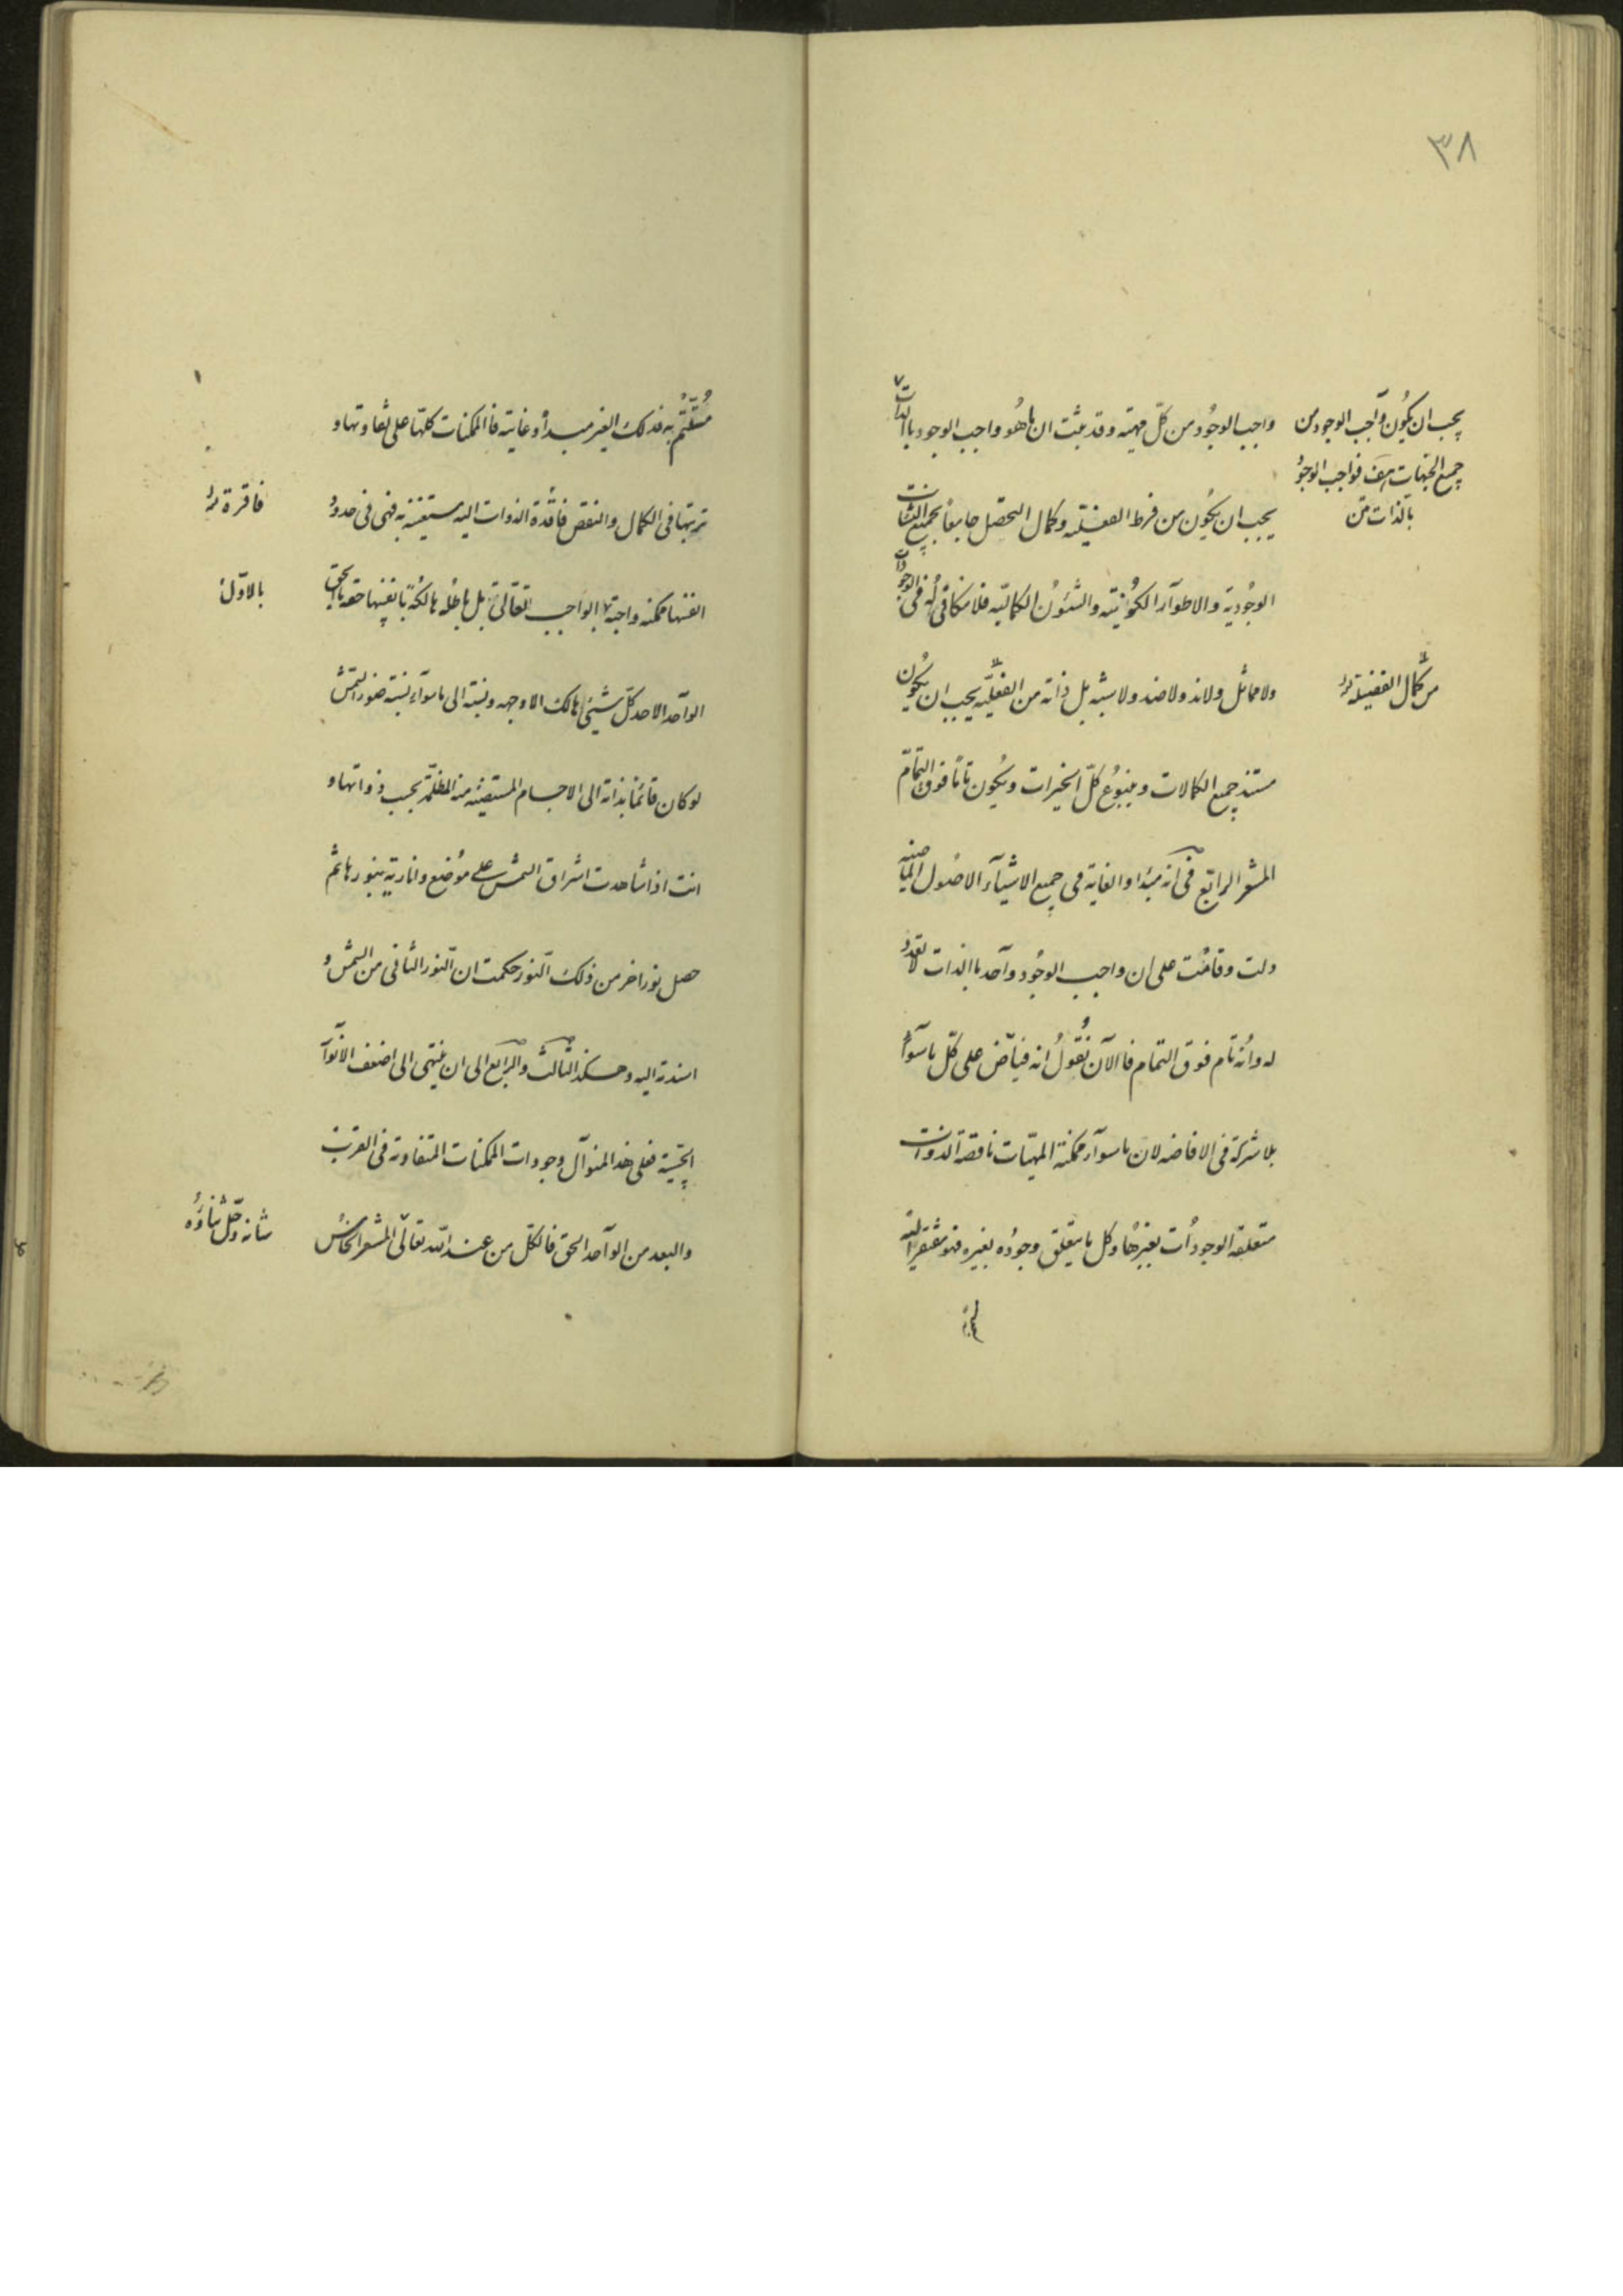 ٣٨
واجب الوجود من كلّ جهة وقد ثبت ان ما هُو واجب الوجود باالذات
يجب ان يكون واجب الوجود من
جميع الجهات فواجب الوجود
بالذات من
يجب ان يكون من فرط الفعليّه وكمال التحصل جامعاً بجميع النشات
الوجُوديّة والاطوآر الكونيّه والشئون الكماليّه فلا مكافى له فى الوجود
ولا مماثل ولا ند ولا ضد ولا شبه بل ذاته من الفعليّه يجب ان يكون
من كمال الفضيلة
مستند جميع الكمالات وينبوع كلّ الخيرات ويكون تامّا فوق التمام
المشعر الرابع فى انه مبدا و الغاية فى جميع الاشيآء الاصول الماضيه
دلت وقامت على ان واجب الوجُود وآحد باالذات لا تعدد
له وانه تام فوق التمام فاالآن نقول انه فياض على كلّ ماسوآه
بلا شركة فى الافاضه لان ماسوآه ممكنة المهيّات ناقصة الذوات
متعلقة الوجودات بغيرها وكل ما يتعلق وجوده بغيره فهو مفتقر اليه
مستتم به فذلك الغير مبدأه وغايته فاالممكنات كلها على تفاوتها و
ترتبها فى الكمال والنقص فاقدة الذوات اليه مستغنيه به فهى فى حدود
فاقرة
انفسها ممكنه واجبة بالواجب تعالى بل باطله هالكة بانفسها حقه بالحق
بالاوّل
الوآحد الاحد كلّ شيئ هالك الا وجهه ونسبته الى ماسوآه نسبة ضوء الشمس
لو كان قائما بذاته الى الاجسام المستضيئه منه المظلمة بحسب ذواتها و
انت اذا شاهدت اشراق الشمس على موضع وانارته بنورها ثم
حصل نور اخر من ذلك النور حكمت ان النور الثانى من الشمس و
اسندته اليه وهكذا الثالث والرابع الى ان ينتهى الى اضعف الانوآر
الحسيّة فعلى هذا المنوآل وجودات الممكنات المتفاوته فى القرب
والبعد من الوآحد الحق فالكل من عند الله تعالى المشعر الخامس
شانه وجلّ ثناؤه